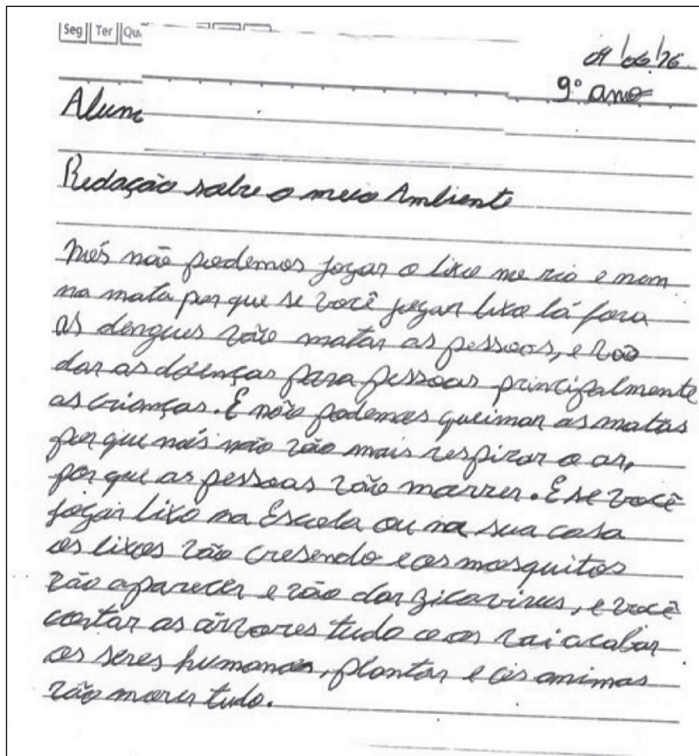 Seg Ter Qu
09/06/16
9º ano
Alun
Redação sobre o meio Ambiente
Nós não podemos jogar o lixo no rio e nem
na mata por que se você jogar lixo lá fora
as dengues vão matar as pessoas, e vão
dar as doenças para pessoas principalmente
as crianças. E não podemos queimar as matas
por que nós não vão mais respirar o ar,
por que as pessoas vão morrer. E se você
jogar lixo na Escola ou na sua casa
os lixos vão cresendo e os mosquitos
vão aparecer e vão dar zicavirus, e você
cortar as árvores tudo o ar vai acabar
os seres humanos, plantas e os animas
vão morer tudo.